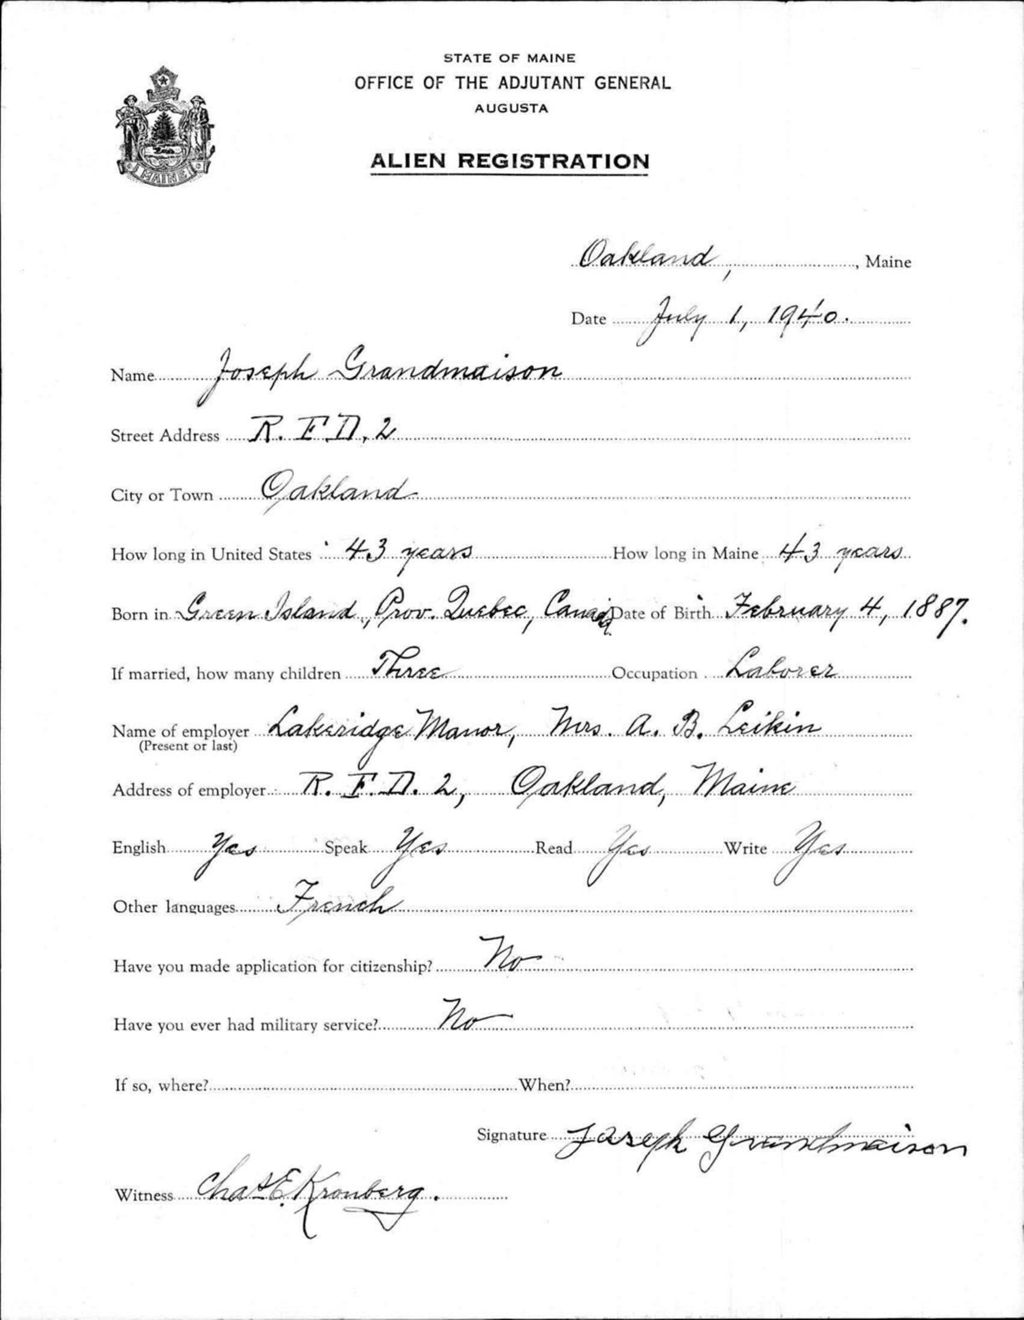 STATE OF MAINE
OFFICE OF THE ADJUTANT GENERAL
AUGUSTA
ALIEN REGISTRATION
MAINE
Oakland, , Maine
Date July 1, 1940.
Name Joseph Grandmaison
Street Address R. F. D. 2
City or Town Oakland
How long in United States 43 years How long in Maine 43 years
Born in Green Island, Prov. Quebec, Canada Date of Birth February 4, 1887.
If married, how many children Three Occupation Laborer
Name of employer Lakeridge Manor, Mrs. A. B. Leikin
(Present or last)
Address of employer R. F. D. 2, Oakland, Maine
English Yes Speak Yes Read Yes Write Yes
Other languages French
Have you made application for citizenship? No
Have you ever had military service? No
If so, where? When?
Signature Joseph Grandmaison
Witness Chas E. Kronberg.